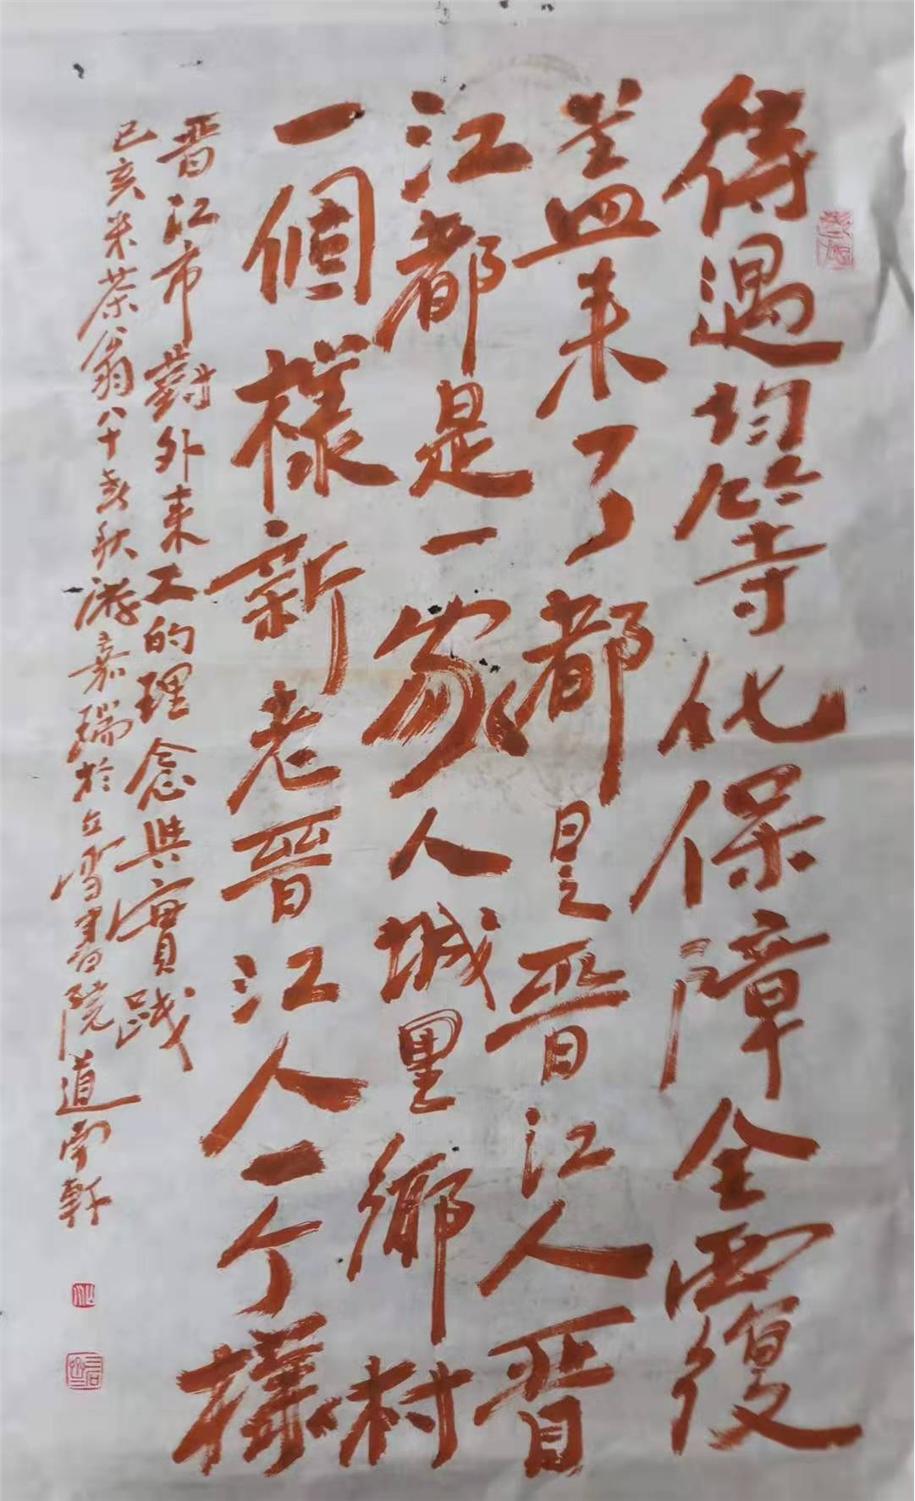 待遇均等化保障全覆
盖来了都是晋江人晋
江都是一家人城里鄉村
一個樣新老晋江人一个樣
晋江市對外来工的理念與實踐
己亥米茶翁八十春秋游嘉瑞於立雪書院道南軒